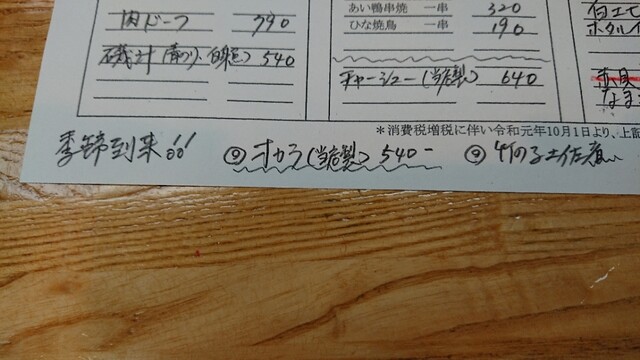 肉ドーフ 790
磯汁(青のり、 540
あい鴨串焼 一串 320
ひな焼鳥 一串 190
チャーシュー(当店製) 640
白エビ
ホタルイ
赤貝
なま
*消費税増税に伴い令和元年10月1日より、上記
季節到来!! オカラ(当店製) 540- 竹の子土佐煮